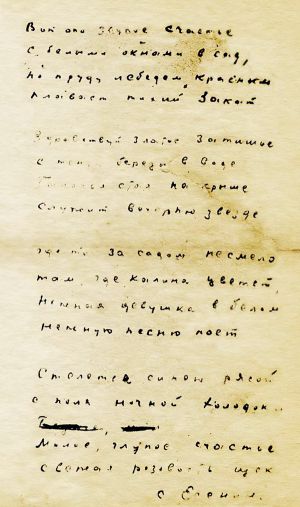 Вот оно глупое счастье
С белыми окнами в сад,
По пруду лебедем красным
Плавает тихий закат
Здравствуй златое затишье
С тенью березы в воде
Галочья стая на крыше
Служит вечерню звезде
Где то за садом несмело
там, где калина цветет,
Нежная девушка в белом
нежную песню поет
Стелется синею рясой
с поля ночной холодок
Милое, глупое счастье
свежая розовость щек
с Есенин.